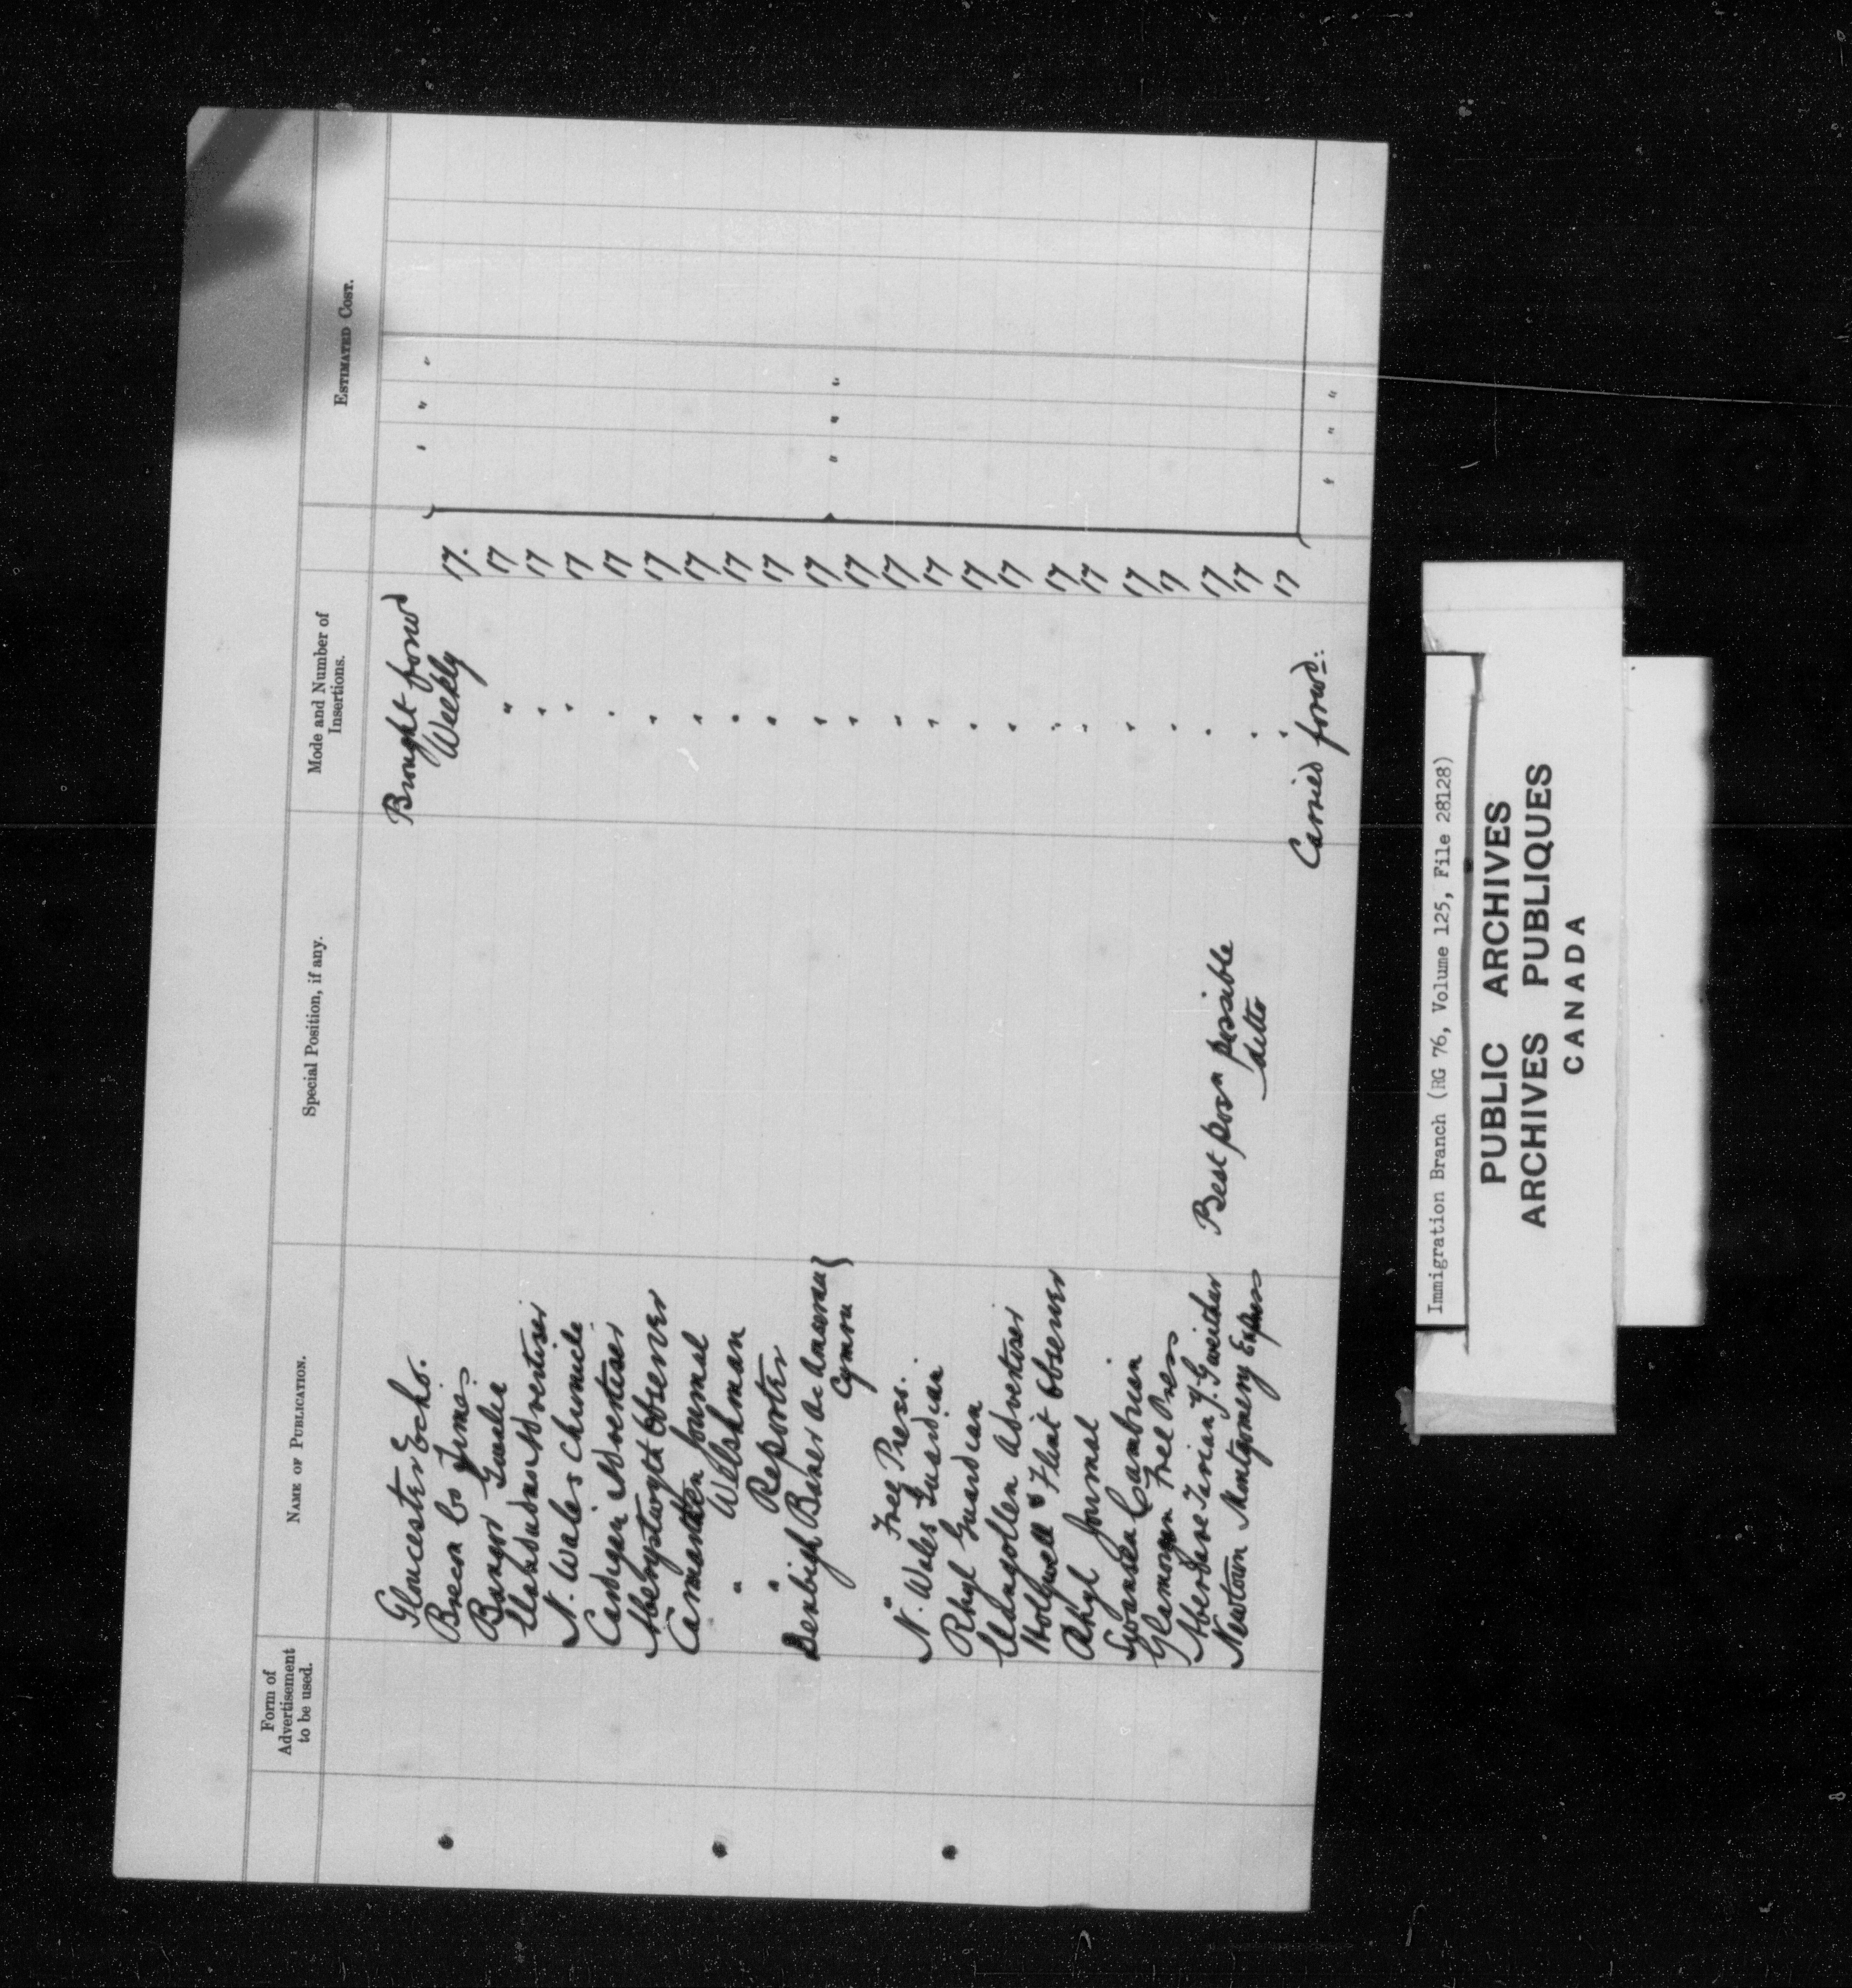 Form of Advertisement to be used.
NAME OF PUBLICATION.
Special Position, if any.
Mode and Number of Insertions.
ESTIMATED COST.
Brought forwd " " "
Gloucester Echo. Weekly 17.
Brecon Co Times " 17
Bangor Gwalia " 17
Llandudno Advertiser " 17
N. Wales Chronicle " 17
Cardigan Advertiser " 17
Aberystwyth Observer " 17
Carmarthen Journal " 17
" Welshman " 17
" Reporter " 17
Denbigh Baner Ac Amserau " 17 " " "
Cymru " 17
" Free Press. " 17
N. Wales Guardian " 17
Rhyl Guardian " 17
Llangollen Advertiser " 17
Holywell & Flint Observer " 17
Rhyl Journal " 17
Swansea Cambrian " 17
Glamorgan Free Press " 17
Aberdare Tarian Y. Gweithiwr Best posn possible " 17
Newtown Montgomery Express ditto " 17
Carried forwd: " " "
Immigration Branch (RG 76, Volume 125, File 28128)
PUBLIC ARCHIVES
ARCHIVES PUBLIQUES
CANADA